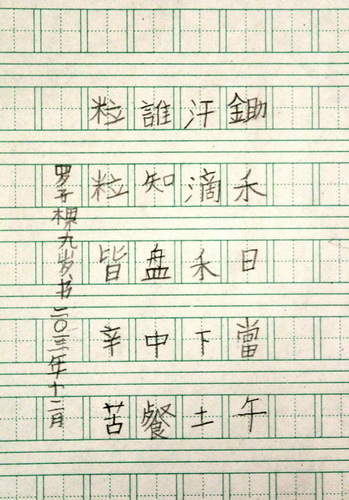 鋤禾日當午
汗滴禾下土
誰知盘中餐
粒粒皆辛苦
罗子棵九岁书二〇一三年十二月